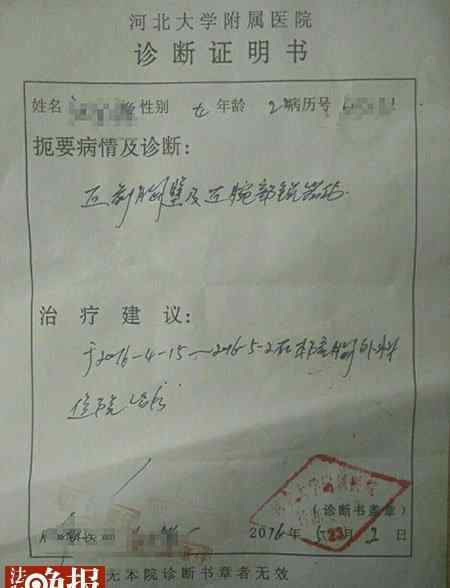 河北大学附属医院
诊断证明书
姓名 性别 女 年龄 2 病历号
扼要病情及诊断：
左前胸壁及左腕部锐器伤.
治疗建议：
于2016-4-15～2016-5-2在我院胸外科
住院治疗
（诊断书盖章）
医 2016年5月2日
无本院诊断书章者无效
法 晚报